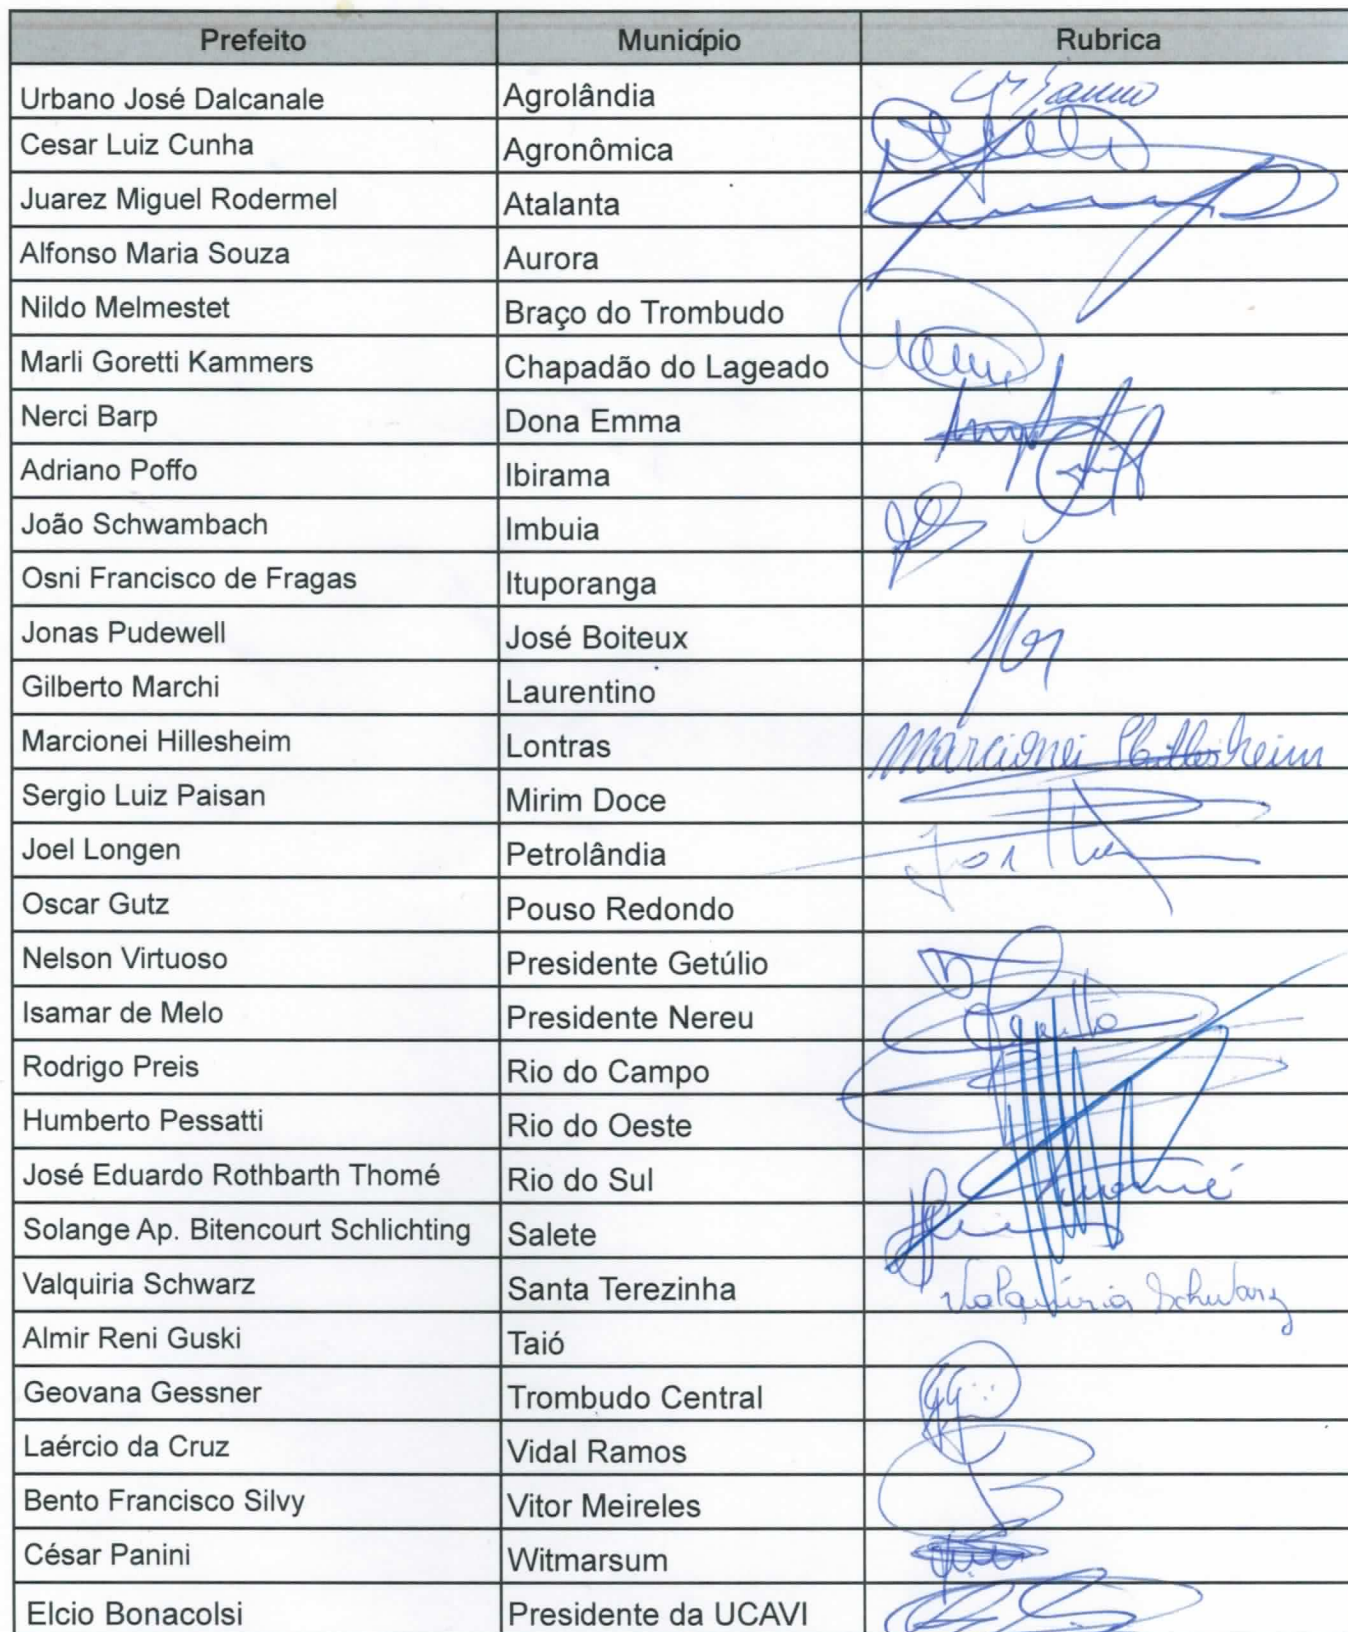 Prefeito Município Rubrica
Urbano José Dalcanale Agrolândia
Cesar Luiz Cunha Agronômica
Juarez Miguel Rodermel Atalanta
Alfonso Maria Souza Aurora
Nildo Melmestet Braço do Trombudo
Marli Goretti Kammers Chapadão do Lageado
Nerci Barp Dona Emma
Adriano Poffo Ibirama
João Schwambach Imbuia
Osni Francisco de Fragas Ituporanga
Jonas Pudewell José Boiteux
Gilberto Marchi Laurentino
Marcionei Hillesheim Lontras Marcionei Hillesheim
Sergio Luiz Paisan Mirim Doce
Joel Longen Petrolândia
Oscar Gutz Pouso Redondo
Nelson Virtuoso Presidente Getúlio
Isamar de Melo Presidente Nereu
Rodrigo Preis Rio do Campo
Humberto Pessatti Rio do Oeste
José Eduardo Rothbarth Thomé Rio do Sul
Solange Ap. Bitencourt Schlichting Salete
Valquiria Schwarz Santa Terezinha Valquíria Schwarz
Almir Reni Guski Taió
Geovana Gessner Trombudo Central
Laércio da Cruz Vidal Ramos
Bento Francisco Silvy Vitor Meireles
César Panini Witmarsum
Elcio Bonacolsi Presidente da UCAVI